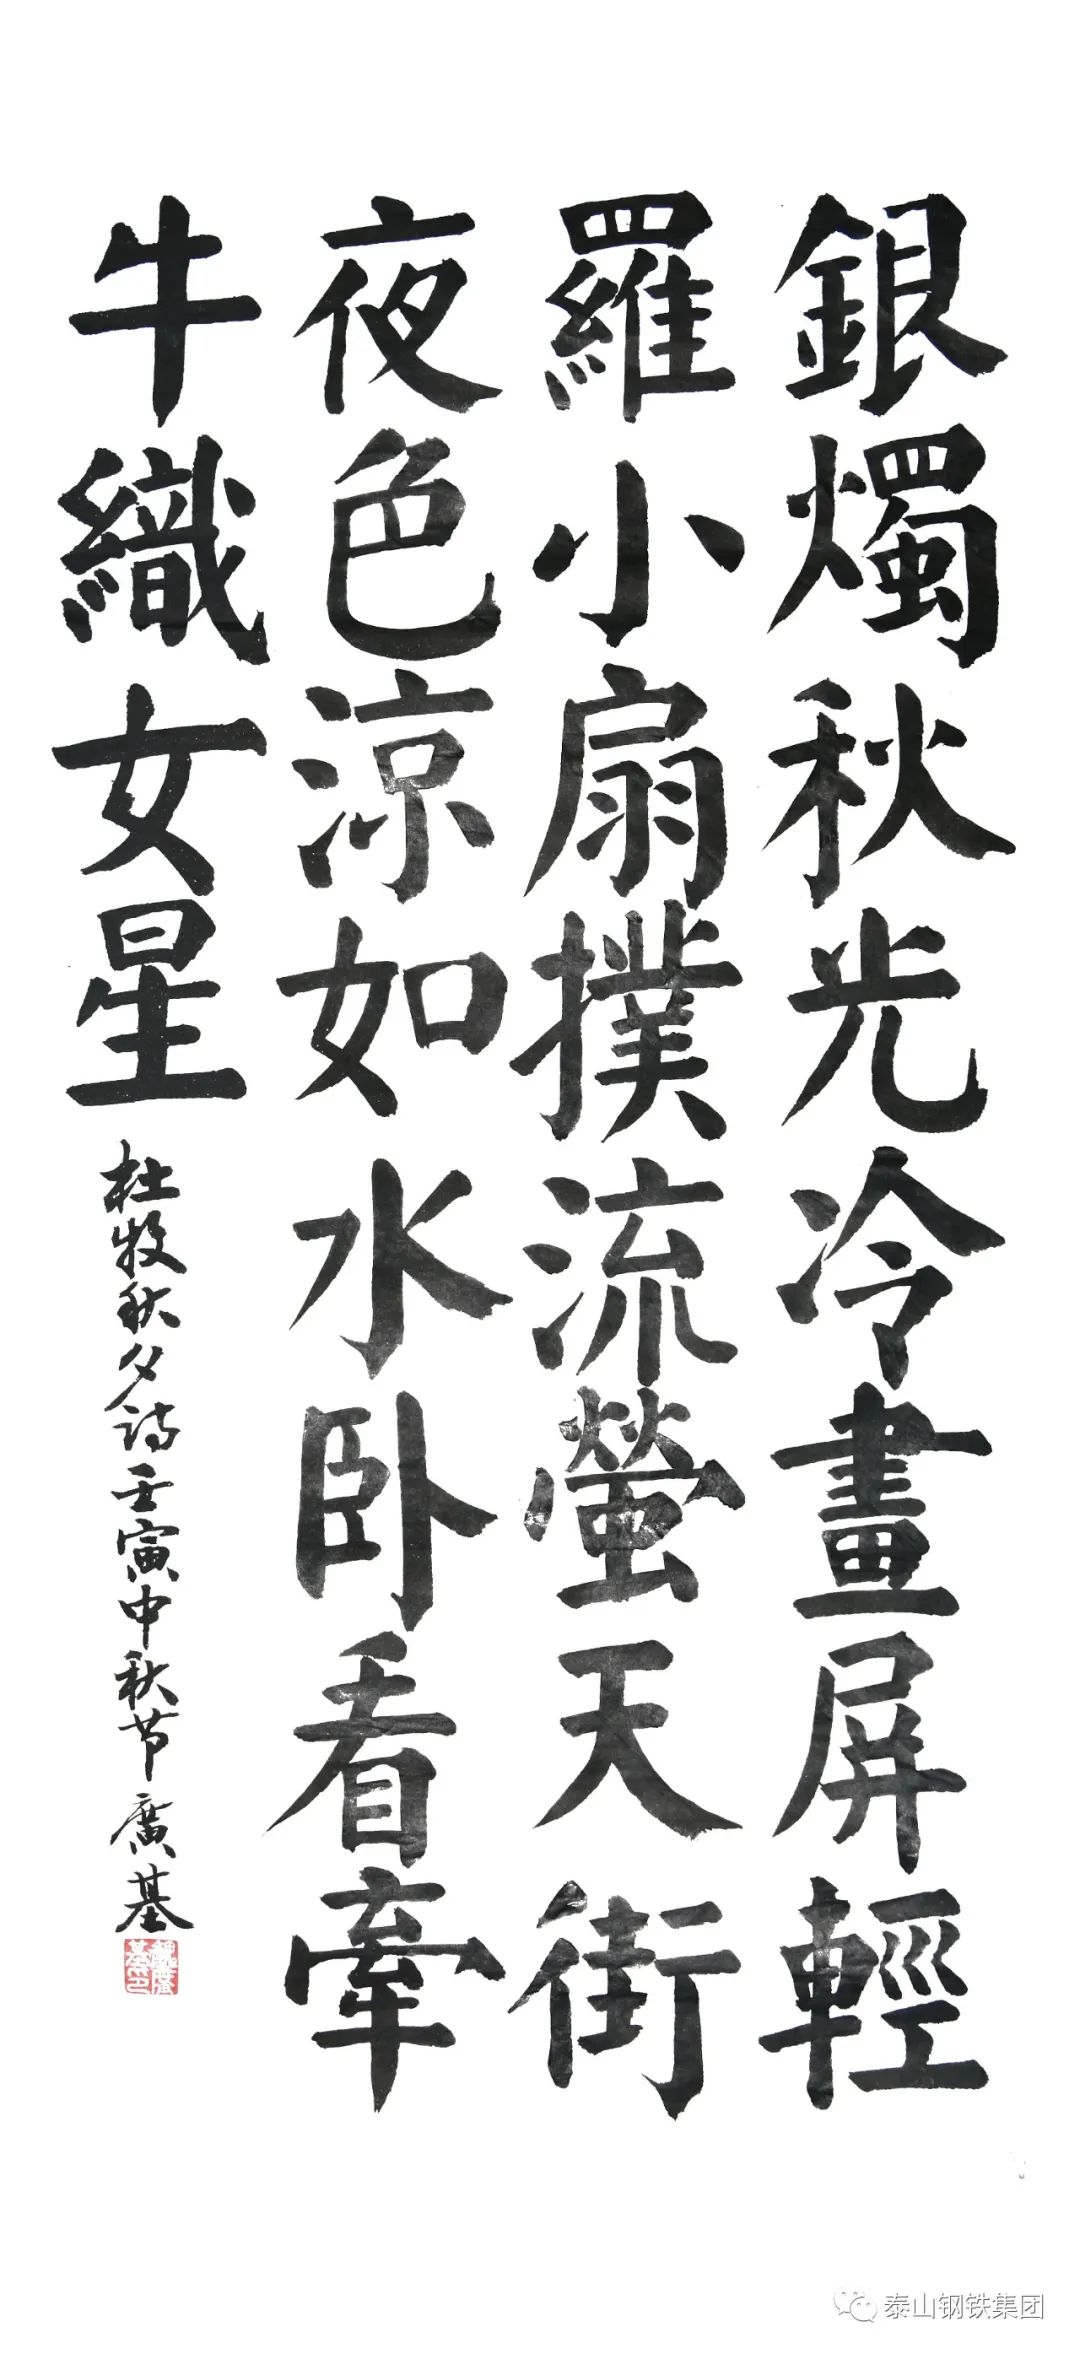 銀燭秋光冷畫屏輕
羅小扇撲流螢天街
夜色涼如水卧看牽
牛織女星
杜牧秋夕诗壬寅中秋节廣基
泰山钢铁集团